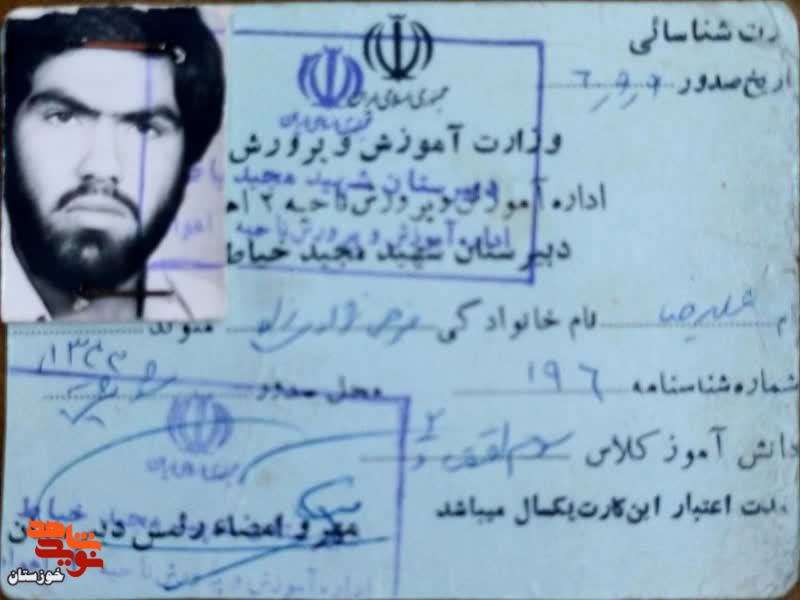 رت شناسائی
اریخ صدور ۶٫۹٫۹
جمهوری اسلامی ایران
وزارت آموزش و پرورش
اداره آموزش و پرورش ناحیه ۲ اه
دبیرستان شهید مجید خیاط
دبیرستان شهید مجید
اداره آموزش و پرورش ناحیه
ام علیرضا نام خانوادگی متولد ۱۳۴۴
شماره شناسنامه ۱۹۶ محل صدور
دانش آموز کلاس سوم ۲
مدت اعتبار این کارت یکسال میباشد
مهر و امضاء رئیس دبیرستان
اداره آموزش و پرورش ناحیه
نوید شاهد
خوزستان